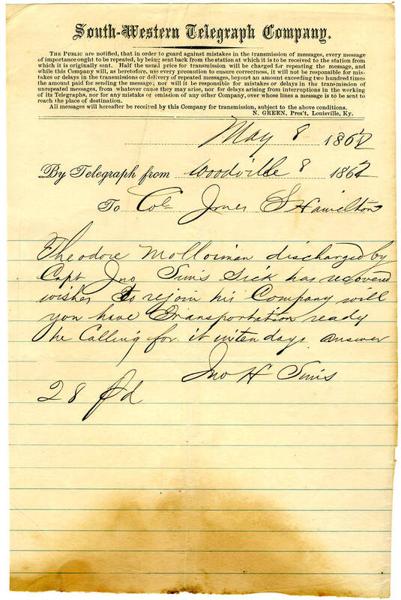 South-Western Telegraph Company.
The Public are notified, that in order to guard against mistakes in the transmission of messages, every message
of importance ought to be repeated, by being sent back from the station at which it is to be received to the station from
which it is originally sent. Half the usual price for transmission will be charged for repeating the message, and
while this Company will, as heretofore, use every precaution to ensure correctness, it will not be responsible for mis-
takes or delays in the transmission or delivery of repeated messages, beyond an amount exceeding two hundred times
the amount paid for sending the message; nor will it be responsible for mistakes or delays in the transmission of
unrepeated messages, from whatever cause they may arise, nor for delays arising from interruptions in the working
of its Telegraphs, nor for any mistake or omission of any other Company, over whose lines a message is to be sent to
reach the place of destination.
All messages will hereafter be received by this Company for transmission, subject to the above conditions.
N. GREEN, Pres't, Louisville, Ky.
May 8 1862
By Telegraph from Woodville 8 1862
To Col Jones S Hamilton
Theodore discharged by
Capt Jno Sims Sick has recovered
wishes to rejoin his Company will
you have transportation ready
he Calling for it in ten days. answer
Jno H Sims
28 Pd